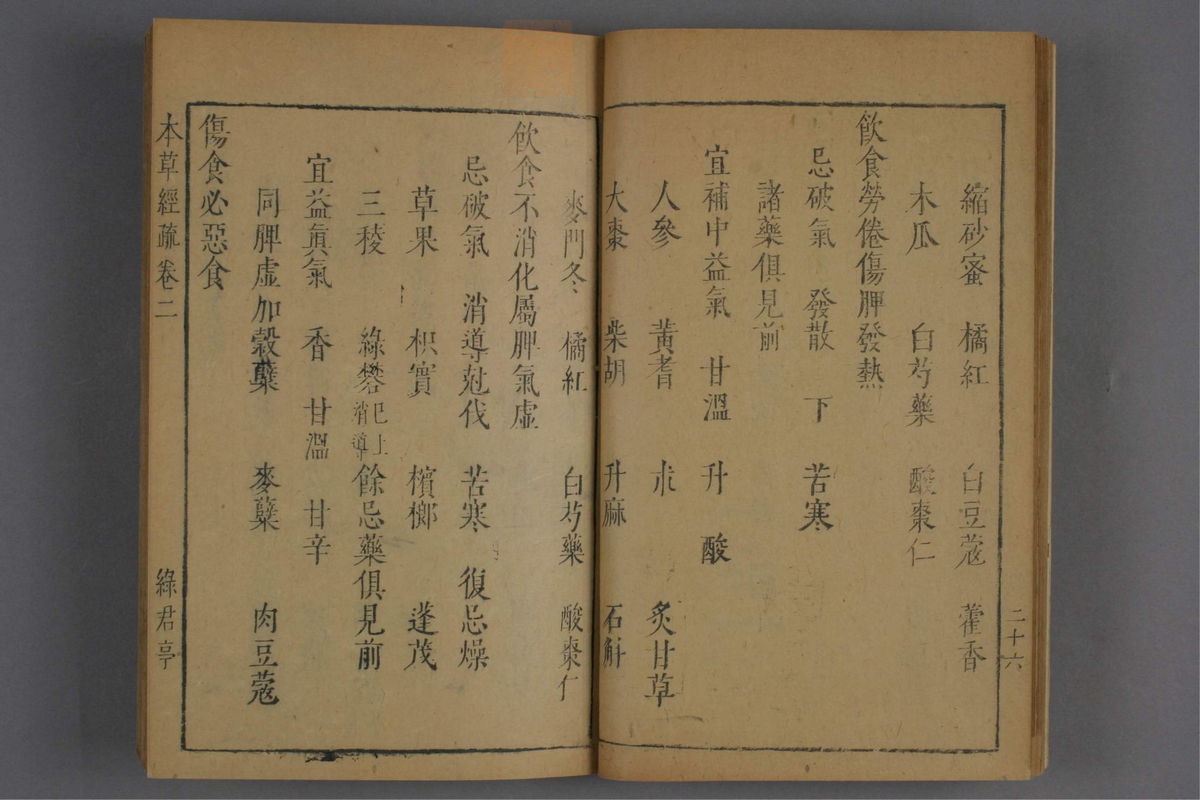 縮砂蜜　橘紅　白豆蔻　藿香
木瓜　白芍藥　酸棗仁
飲食勞倦傷脾發熱
忌破氣　發散　下　苦寒
諸藥俱見前
宜補中益氣　甘溫　升　酸
人參　黃耆　朮　炙甘草
大棗　柴胡　升麻　石斛
二十六
麥門冬　橘紅　白芍藥　酸棗仁
飲食不消化屬脾氣虛
忌破氣　消導尅伐　苦寒　復忌燥
草果　枳實　檳榔　蓬茂
三稜　綠礬已上消導餘忌藥俱見前
宜益眞氣　香　甘溫　甘辛
同脾虛加穀櫱　麥櫱　肉豆蔻
傷食必惡食
本草經疏　卷二　綠君亭